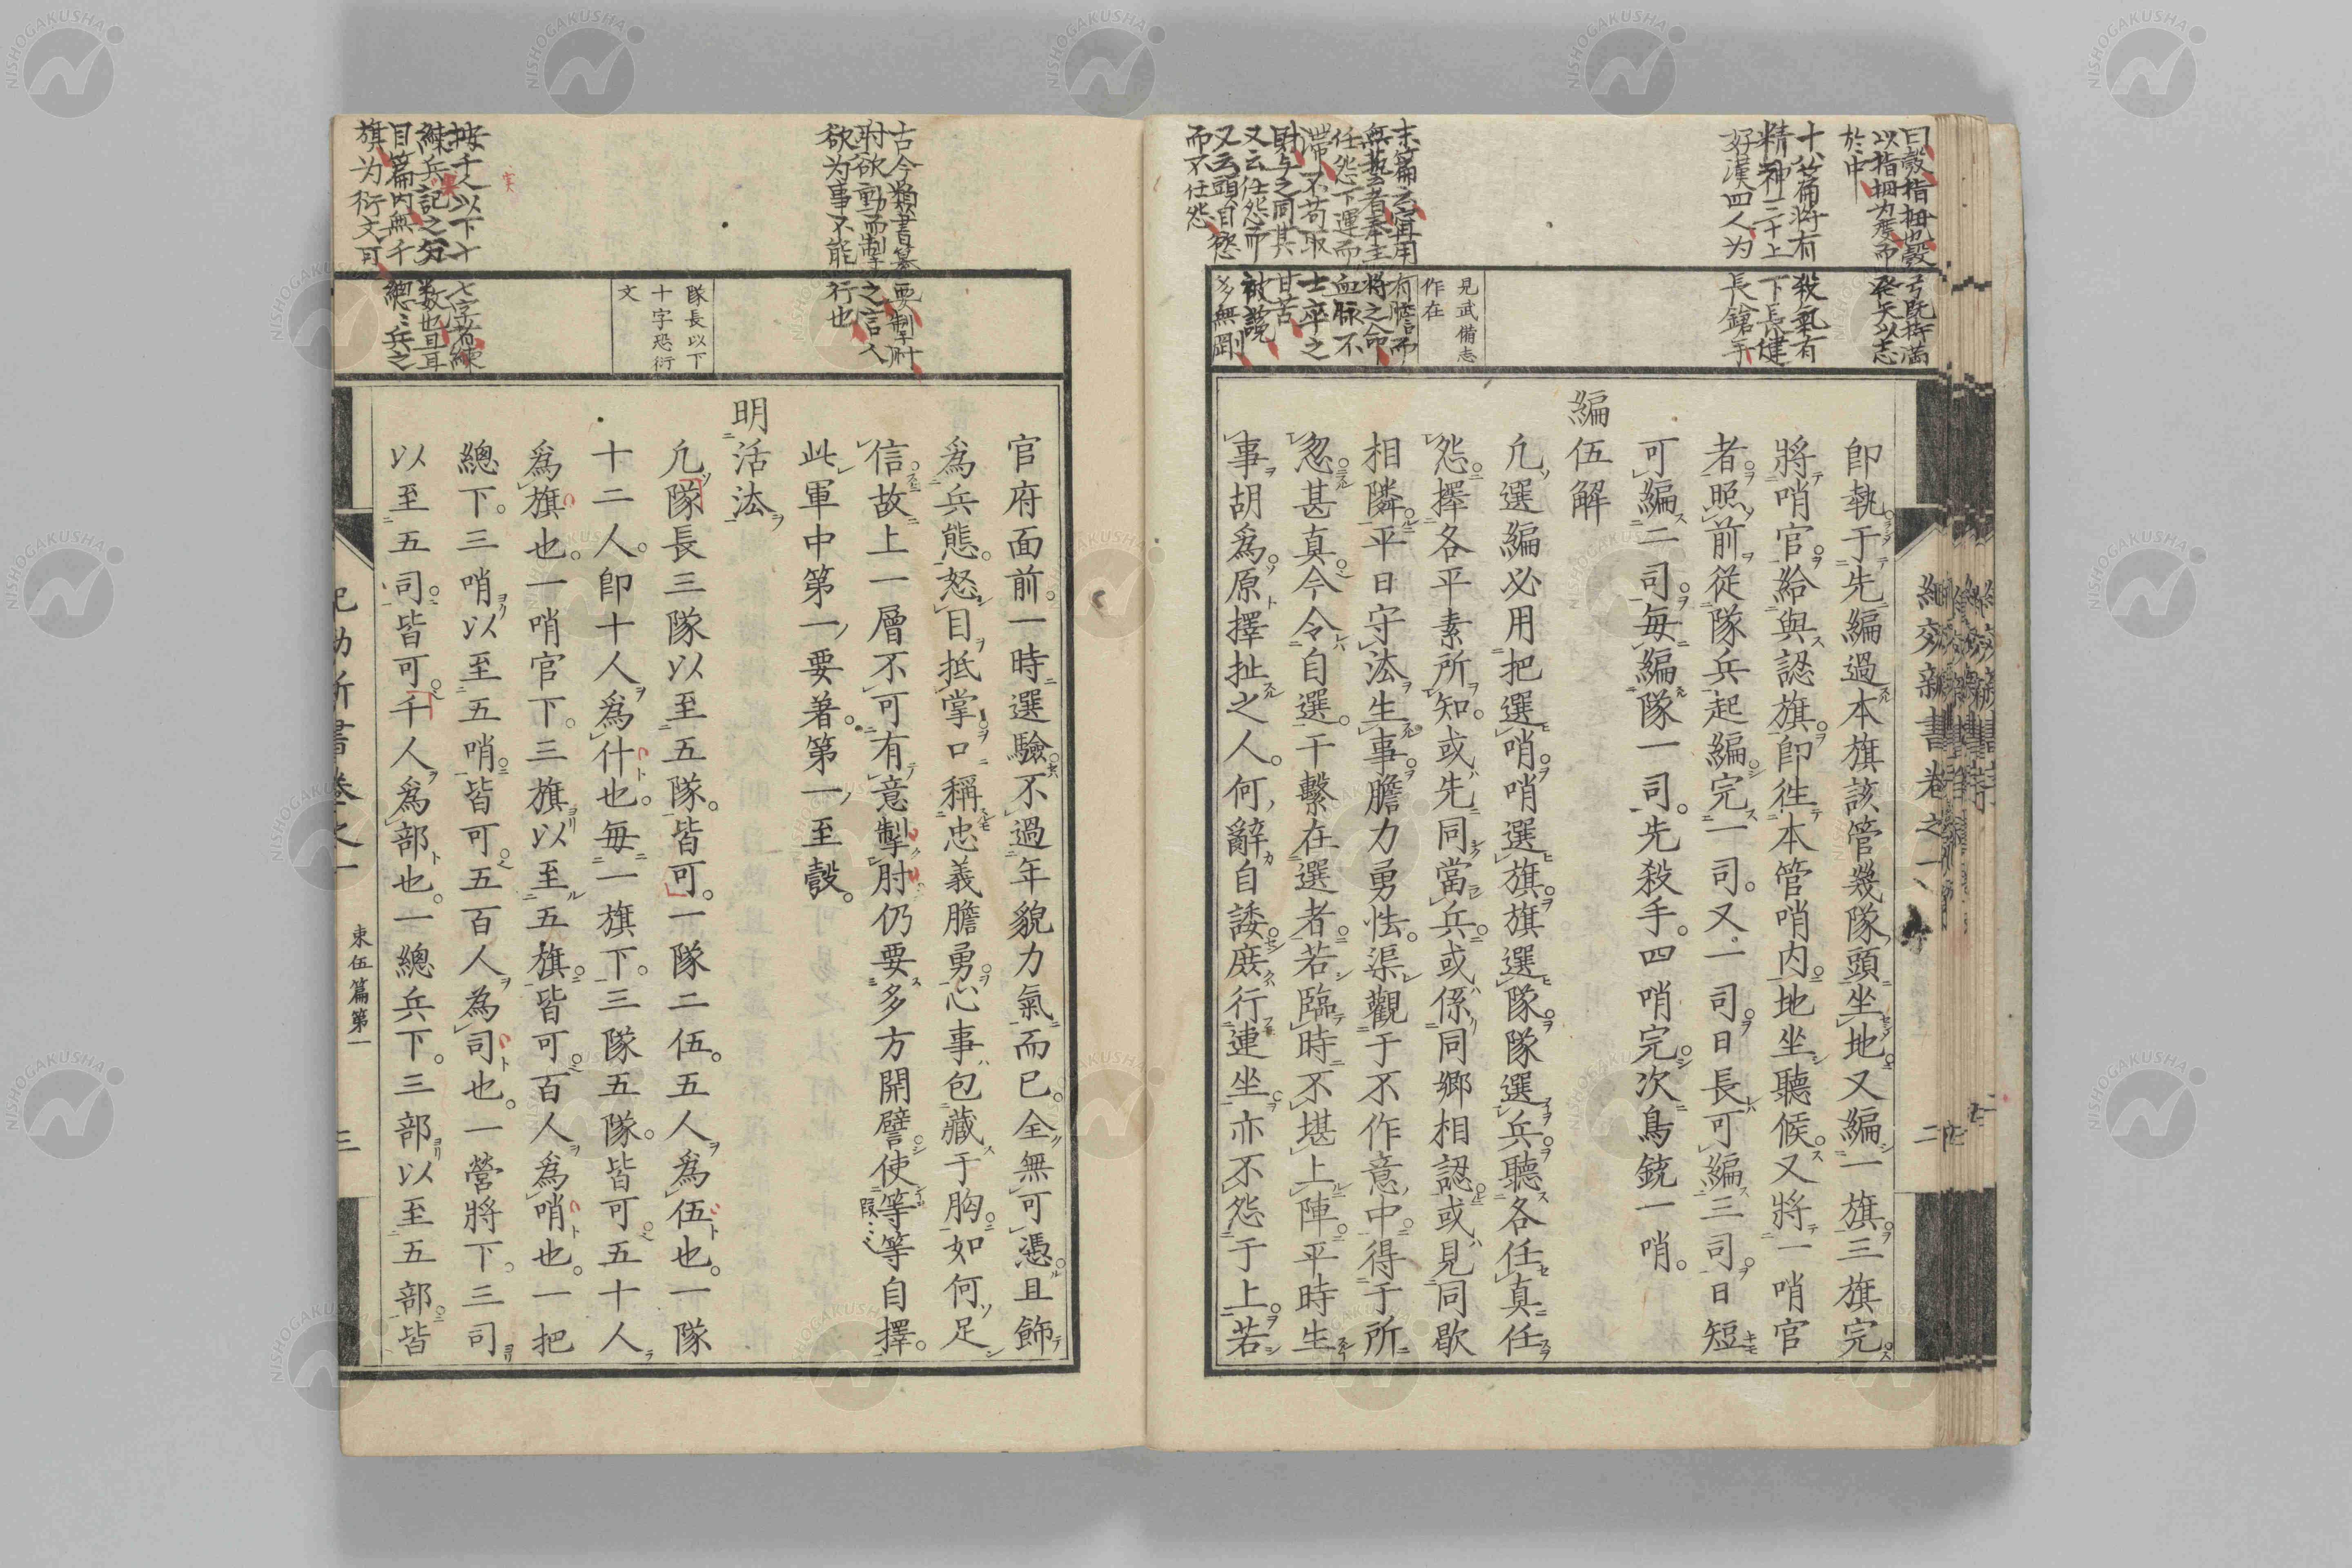 即執于先編過本旗該管幾隊頭坐地又編一旗三旗完
將哨官給與認旗即徃本管哨内地坐聽候又將一哨官
者照前從隊兵起編完一司又一司日長可編三司日短
可編二司毎編隊一司先殺手四哨完次鳥銃一哨
編伍解
凢選編必用把選哨哨選旗旗選隊隊選兵聽各任真任
怨擇各平素所知或先同當兵或係同郷相認或見同歇
相隣平日守法生事膽力勇怯渠觀于不作意中得于所
忽甚真今令自選干繫在選者若臨時不堪上陣平時生
事胡爲原擇扯之人何辭自諉庶行連坐亦不怨于上若
見武備志
作在
十八篇將有殺氣有
精神三十上下長健
好漢四人为長鎗手
紀效新書卷之一
二
官府面前一時選驗不過年貌力氣而已全無可憑且飾
爲兵態怒目抵掌口稱忠義膽勇心事包藏于胸如何足
信故上一層不可有意掣肘仍要多方開譬使等等自擇
此軍中第一要着第一至彀
明活法
凢隊長三隊以至五隊皆可一隊二伍五人爲伍也一隊
十二人即十人爲什也毎一旗下三隊五隊皆可五十人
爲旗也一哨官下三旗以至五旗皆可百人爲哨也一把
總下三哨以至五哨皆可五百人為司也一營將下三司
以至五司皆可千人爲部也一總兵下三部以至五部皆
隊長以下
十字恐衍
文
古今類書纂要掣肘
肘欲動而掣之言人
欲为事不能行也
紀效新書卷之一
束伍篇第一
三
NISHOGAKUSHA